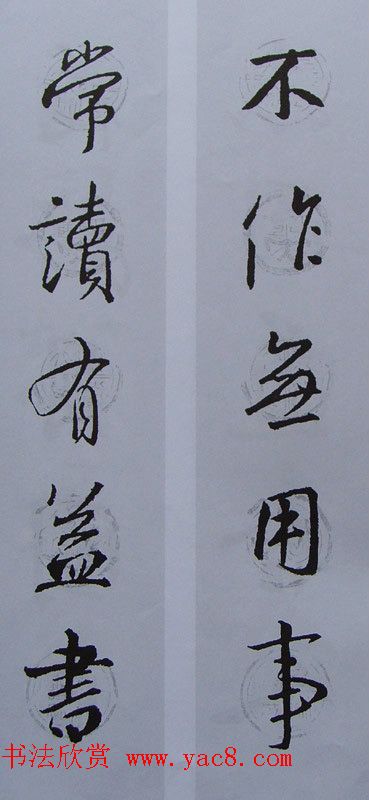 不作無用事
常讀有益書
书法欣赏 www.yac8.com